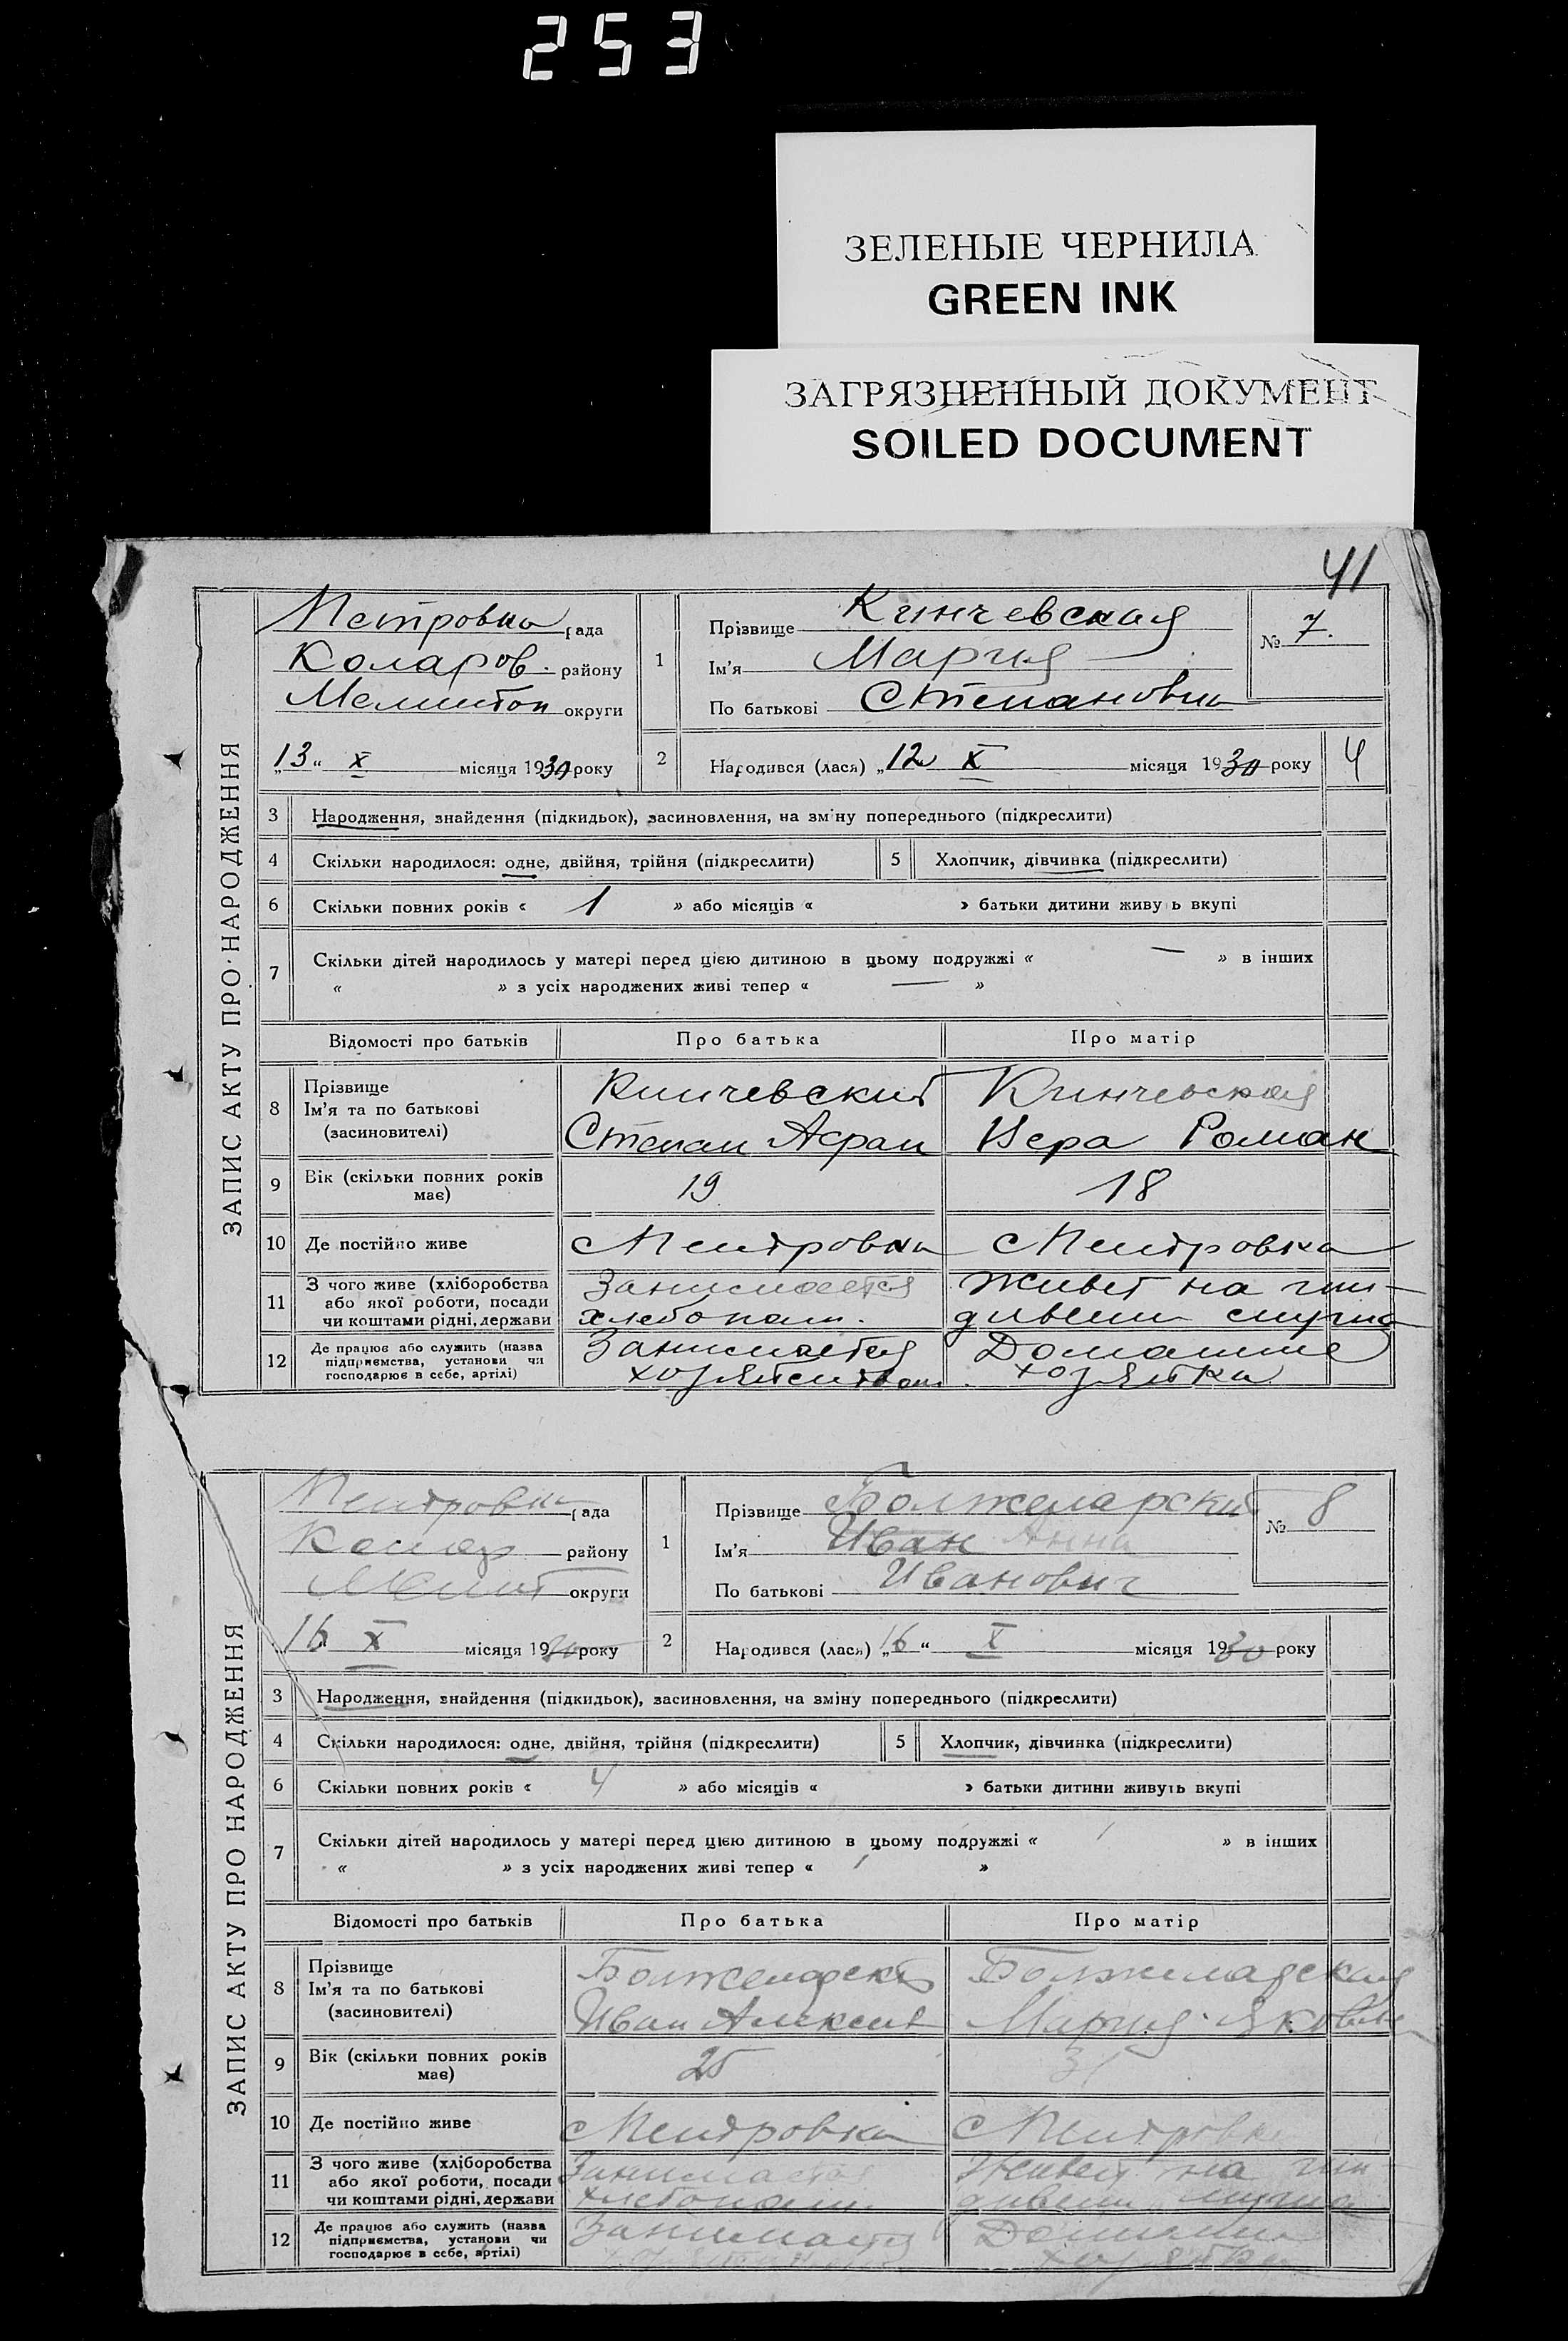 253
ЗЕЛЕНЫЕ ЧЕРНИЛА
GREEN INK
ЗАГРЯЗНЕННЫЙ ДОКУМЕНТ
SOILED DOCUMENT
41
ЗАПИС АКТУ ПРО НАРОДЖЕННЯ
Петровка рада
Коларов. району
округи
„13“ X місяця 1930 року
1
Прізвище Кинчевская
Ім'я Мария
По батькові Степановна
№ 7.
2 Народився (лася) „12 X місяця 1930 року 4
3 Народження, знайдення (підкидьок), засиновлення, на зміну попереднього (підкреслити)
4 Скільки народилося: одне, двійня, трійня (підкреслити) 5 Хлопчик, дівчинка (підкреслити)
6 Скільки повних років « 1 » або місяців « » батьки дитини живуть вкупі
7 Скільки дітей народилось у матері перед цією дитиною в цьому подружжі « — » в інших
« » з усіх народжених живі тепер « — »
Відомості про батьків Про батька Про матір
8 Прізвище
Ім'я та по батькові
(засиновителі)
Кинчевский
Степан
Кинчевская
Вера Роман
9 Вік (скільки повних років має) 19 18
10 Де постійно живе с Петровка с Петровка
11 З чого живе (хліборобства або якої роботи, посади чи коштами рідні, держави
Занимается
хлебопаш.
Живет на
мужа
12 Де працює або служить (назва підприємства, установи чи господарює в себе, артілі)
Занимается
хозяйством.
Домашне
хозяйка
ЗАПИС АКТУ ПРО НАРОДЖЕННЯ
Петровка рада
Колар району
округи
16 X місяця 1930 року
1
Прізвище Болжеларский
Ім'я Иван Анна
По батькові Иванович
№ 8
2 Народився (лася) „16“ X місяця 1930 року
3 Народження, знайдення (підкидьок), засиновлення, на зміну попереднього (підкреслити)
4 Скільки народилося: одне, двійня, трійня (підкреслити) 5 Хлопчик, дівчинка (підкреслити)
6 Скільки повних років « 4 » або місяців « » батьки дитини живуть вкупі
7 Скільки дітей народилось у матері перед цією дитиною в цьому подружжі « 1 » в інших
« » з усіх народжених живі тепер « 1 »
Відомості про батьків Про батька Про матір
8 Прізвище
Ім'я та по батькові
(засиновителі)
Иван Алексеев
Мария Яковле
9 Вік (скільки повних років має) 25
10 Де постійно живе с Петровка с Петровка
11 З чого живе (хліборобства або якої роботи, посади чи коштами рідні, держави
Занимается
хлебопаш
Живет на
мужа
12 Де працює або служить (назва підприємства, установи чи господарює в себе, артілі)
Занимается
Домашн
хозяйка